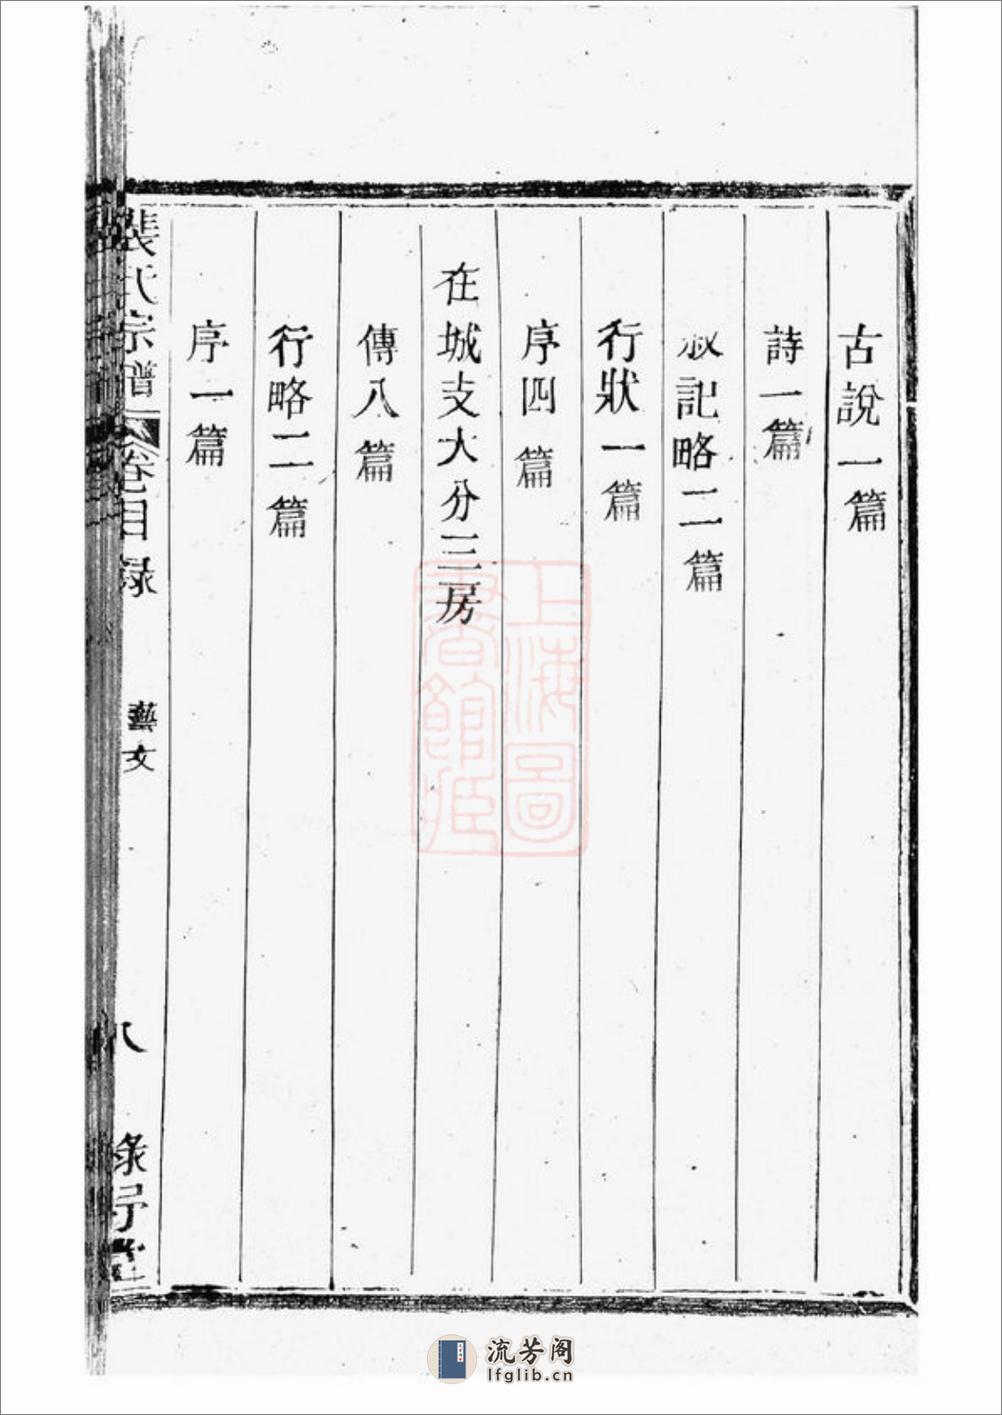 古說一篇
詩一篇
記略二篇
行狀一篇
序四篇
在城支大分三房
傳八篇
行略二篇
序一篇
張氏宗譜
卷目錄
藝文
八
堂
上海圖
書館藏
流芳阁
lfglib.cn